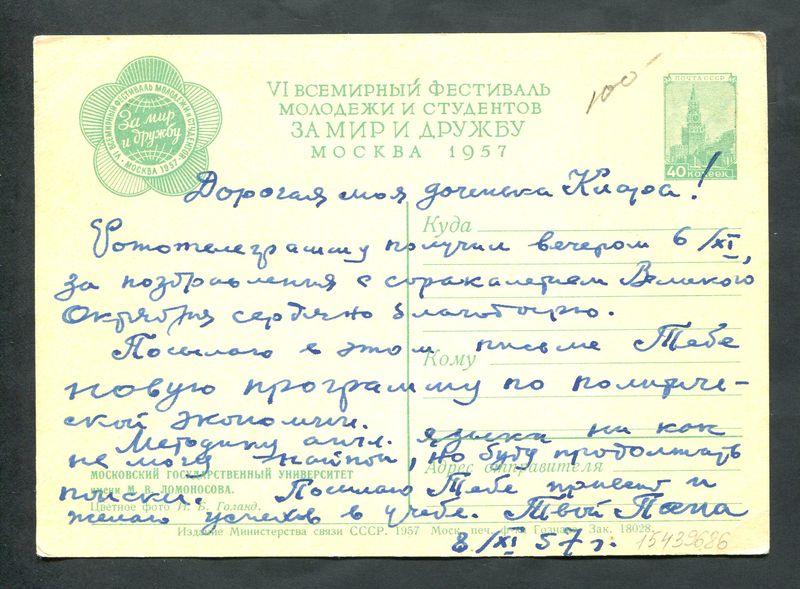 VI ВСЕМИРНЫЙ ФЕСТИВАЛЬ
МОЛОДЕЖИ И СТУДЕНТОВ
ЗА МИР И ДРУЖБУ
МОСКВА 1957
VI ВСЕМИРНЫЙ ФЕСТИВАЛЬ МОЛОДЕЖИ И СТУДЕНТОВ
За мир
и дружбу
МОСКВА 1957
100
ПОЧТА СССР
40 КОПЕЕК
Дорогая моя доченька Клара!
Куда
Фототелеграмму получил вечером 6/XI,
за поздравления с сорокалетием Великого
Октября сердечно благодарю.
Посылаю в этом письме Тебе
Кому
новую программу по политиче-
ской экономии.
Методику англ. языка ни как
не могу найти, но буду продолжать
Адрес отправителя
МОСКОВСКИЙ ГОСУДАРСТВЕННЫЙ УНИВЕРСИТЕТ
имени М. В. ЛОМОНОСОВА.
поиски. Посылаю Тебе привет и
Цветное фото И. Б. Голанд.
желаю успехов в учебе. Твой Папа
Издание Министерства связи СССР. 1957 Моск. печ. ф-ка Гознака. Зак. 18028.
8/XI 57 г.
15439686